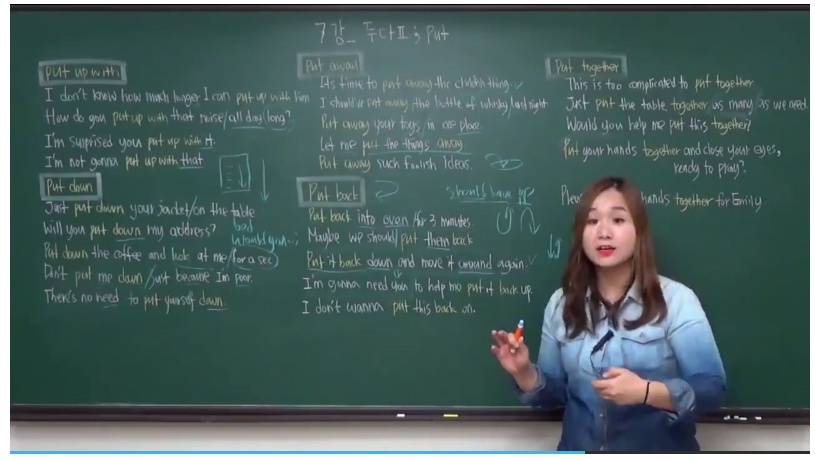 7강_ 동사Ⅱ; put
put up with
I don't know how much longer I can put up with him
How do you put up with that noise/all day long?
I'm surprised you put up with it.
I'm not gonna put up with that
Put down
Just put down your jacket/on the table
bed
Will you put down my address?
Would you
Put down the coffee and look at me/for a sec)
Don't put me down/just because I'm poor.
There's no need to put yourself down.
Put away
It's time to put away the childish thing.
I should've put away the bottle of whisky/last night
Put away your toys/in one place.
Let me put the things away
Put away such foolish Ideas.
Put back
should have PP
Put back into oven/for 3 minutes.
Maybe we should/put them back
Put it back down and move it around again.
I'm gonna need you to help me put it back up
I don't wanna put this back on.
Put together
This is too complicated to put together
Just put the table together as many as we need.
Would you help me put this together?
Put your hands together and close your eyes,
ready to pray?
hands together for Emily.